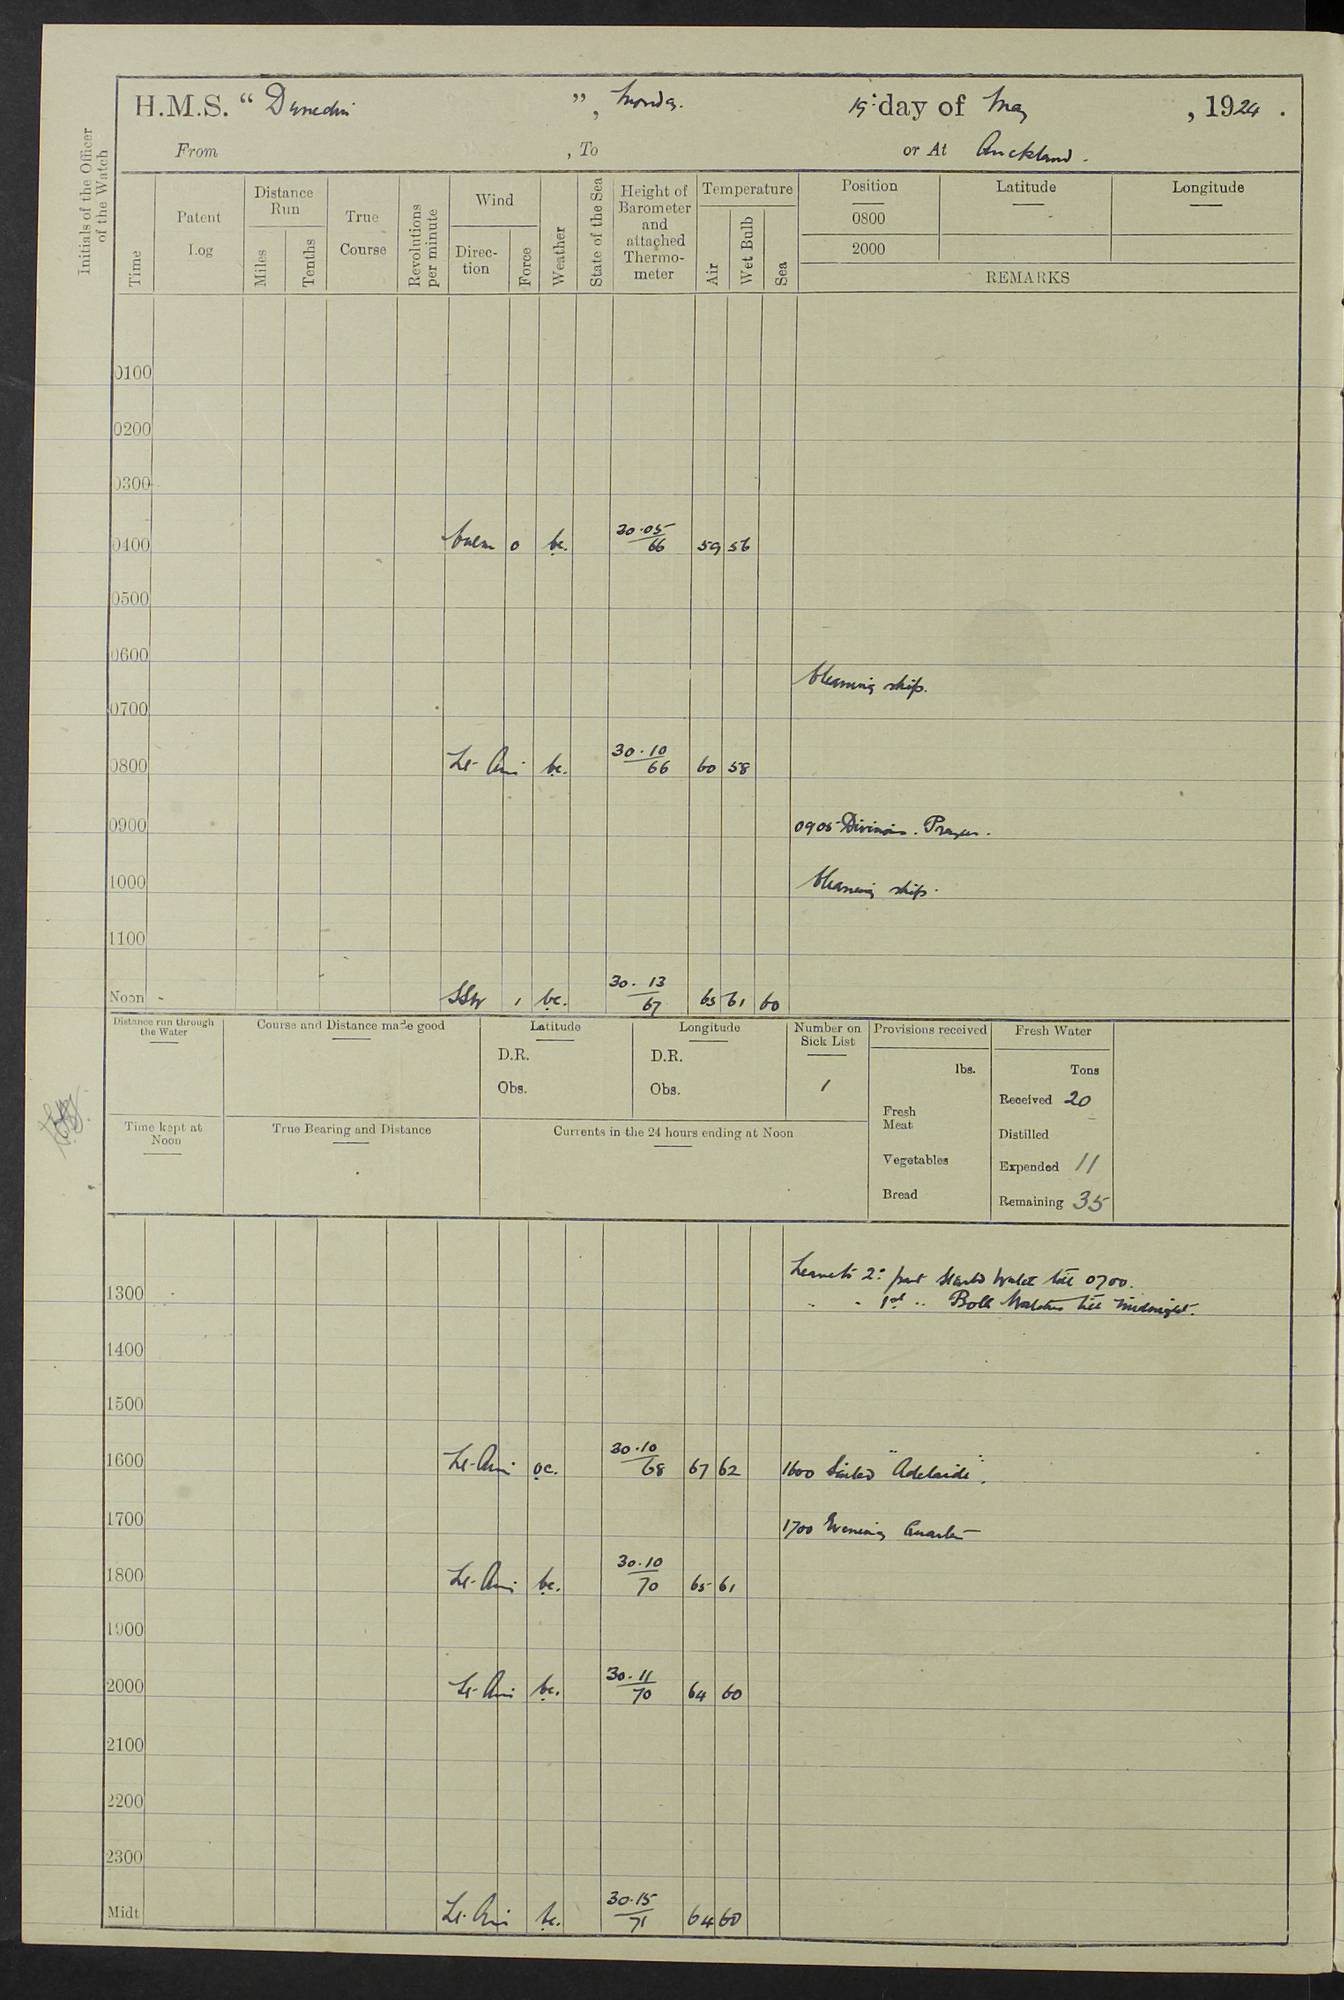 H.M.S. “ Dunedin ”, Monday. 19th day of May, 1924.
From , To or At Auckland.
Initials of the Officer of the Watch
Time
Patent Log
Distance Run
Miles
Tenths
True Course
Revolutions per minute
Wind
Direction
Force
Weather
State of the Sea
Height of Barometer and attached Thermometer
Temperature
Air
Wet Bulb
Sea
Position Latitude Longitude
0800
2000
REMARKS
0100
0200
0300
0400 Calm 0 bc. 30.05 66 59 56
0500
0600
Cleaning ship.
0700
0800 Lt. Airs bc. 30.10 66 60 58
0900 0905 Divisions. Prayers.
1000 Cleaning ship.
1100
Noon SSW 1 bc. 30.13 67 65 61 60
Distance run through the Water
Course and Distance made good
Latitude
D.R.
Obs.
Longitude
D.R.
Obs.
Number on Sick List
1
Provisions received
lbs.
Fresh Meat
Vegetables
Bread
Fresh Water
Tons
Received 20
Distilled
Expended 11
Remaining 35
Time kept at Noon
True Bearing and Distance
Currents in the 24 hours ending at Noon
Leave to 2nd part Starbd Watch till 0700.
1300 " " 1st " Both Watches till midnight.
1400
1500
1600 Lt. Airs oc. 30.10 68 67 62 1600 Sailed "Adelaide".
1700 1700 Evening Quarters
1800 Lt. Airs bc. 30.10 70 65 61
1900
2000 Lt. Airs bc. 30.11 70 64 60
2100
2200
2300
Midt. Lt. Airs bc. 30.15 71 64 60